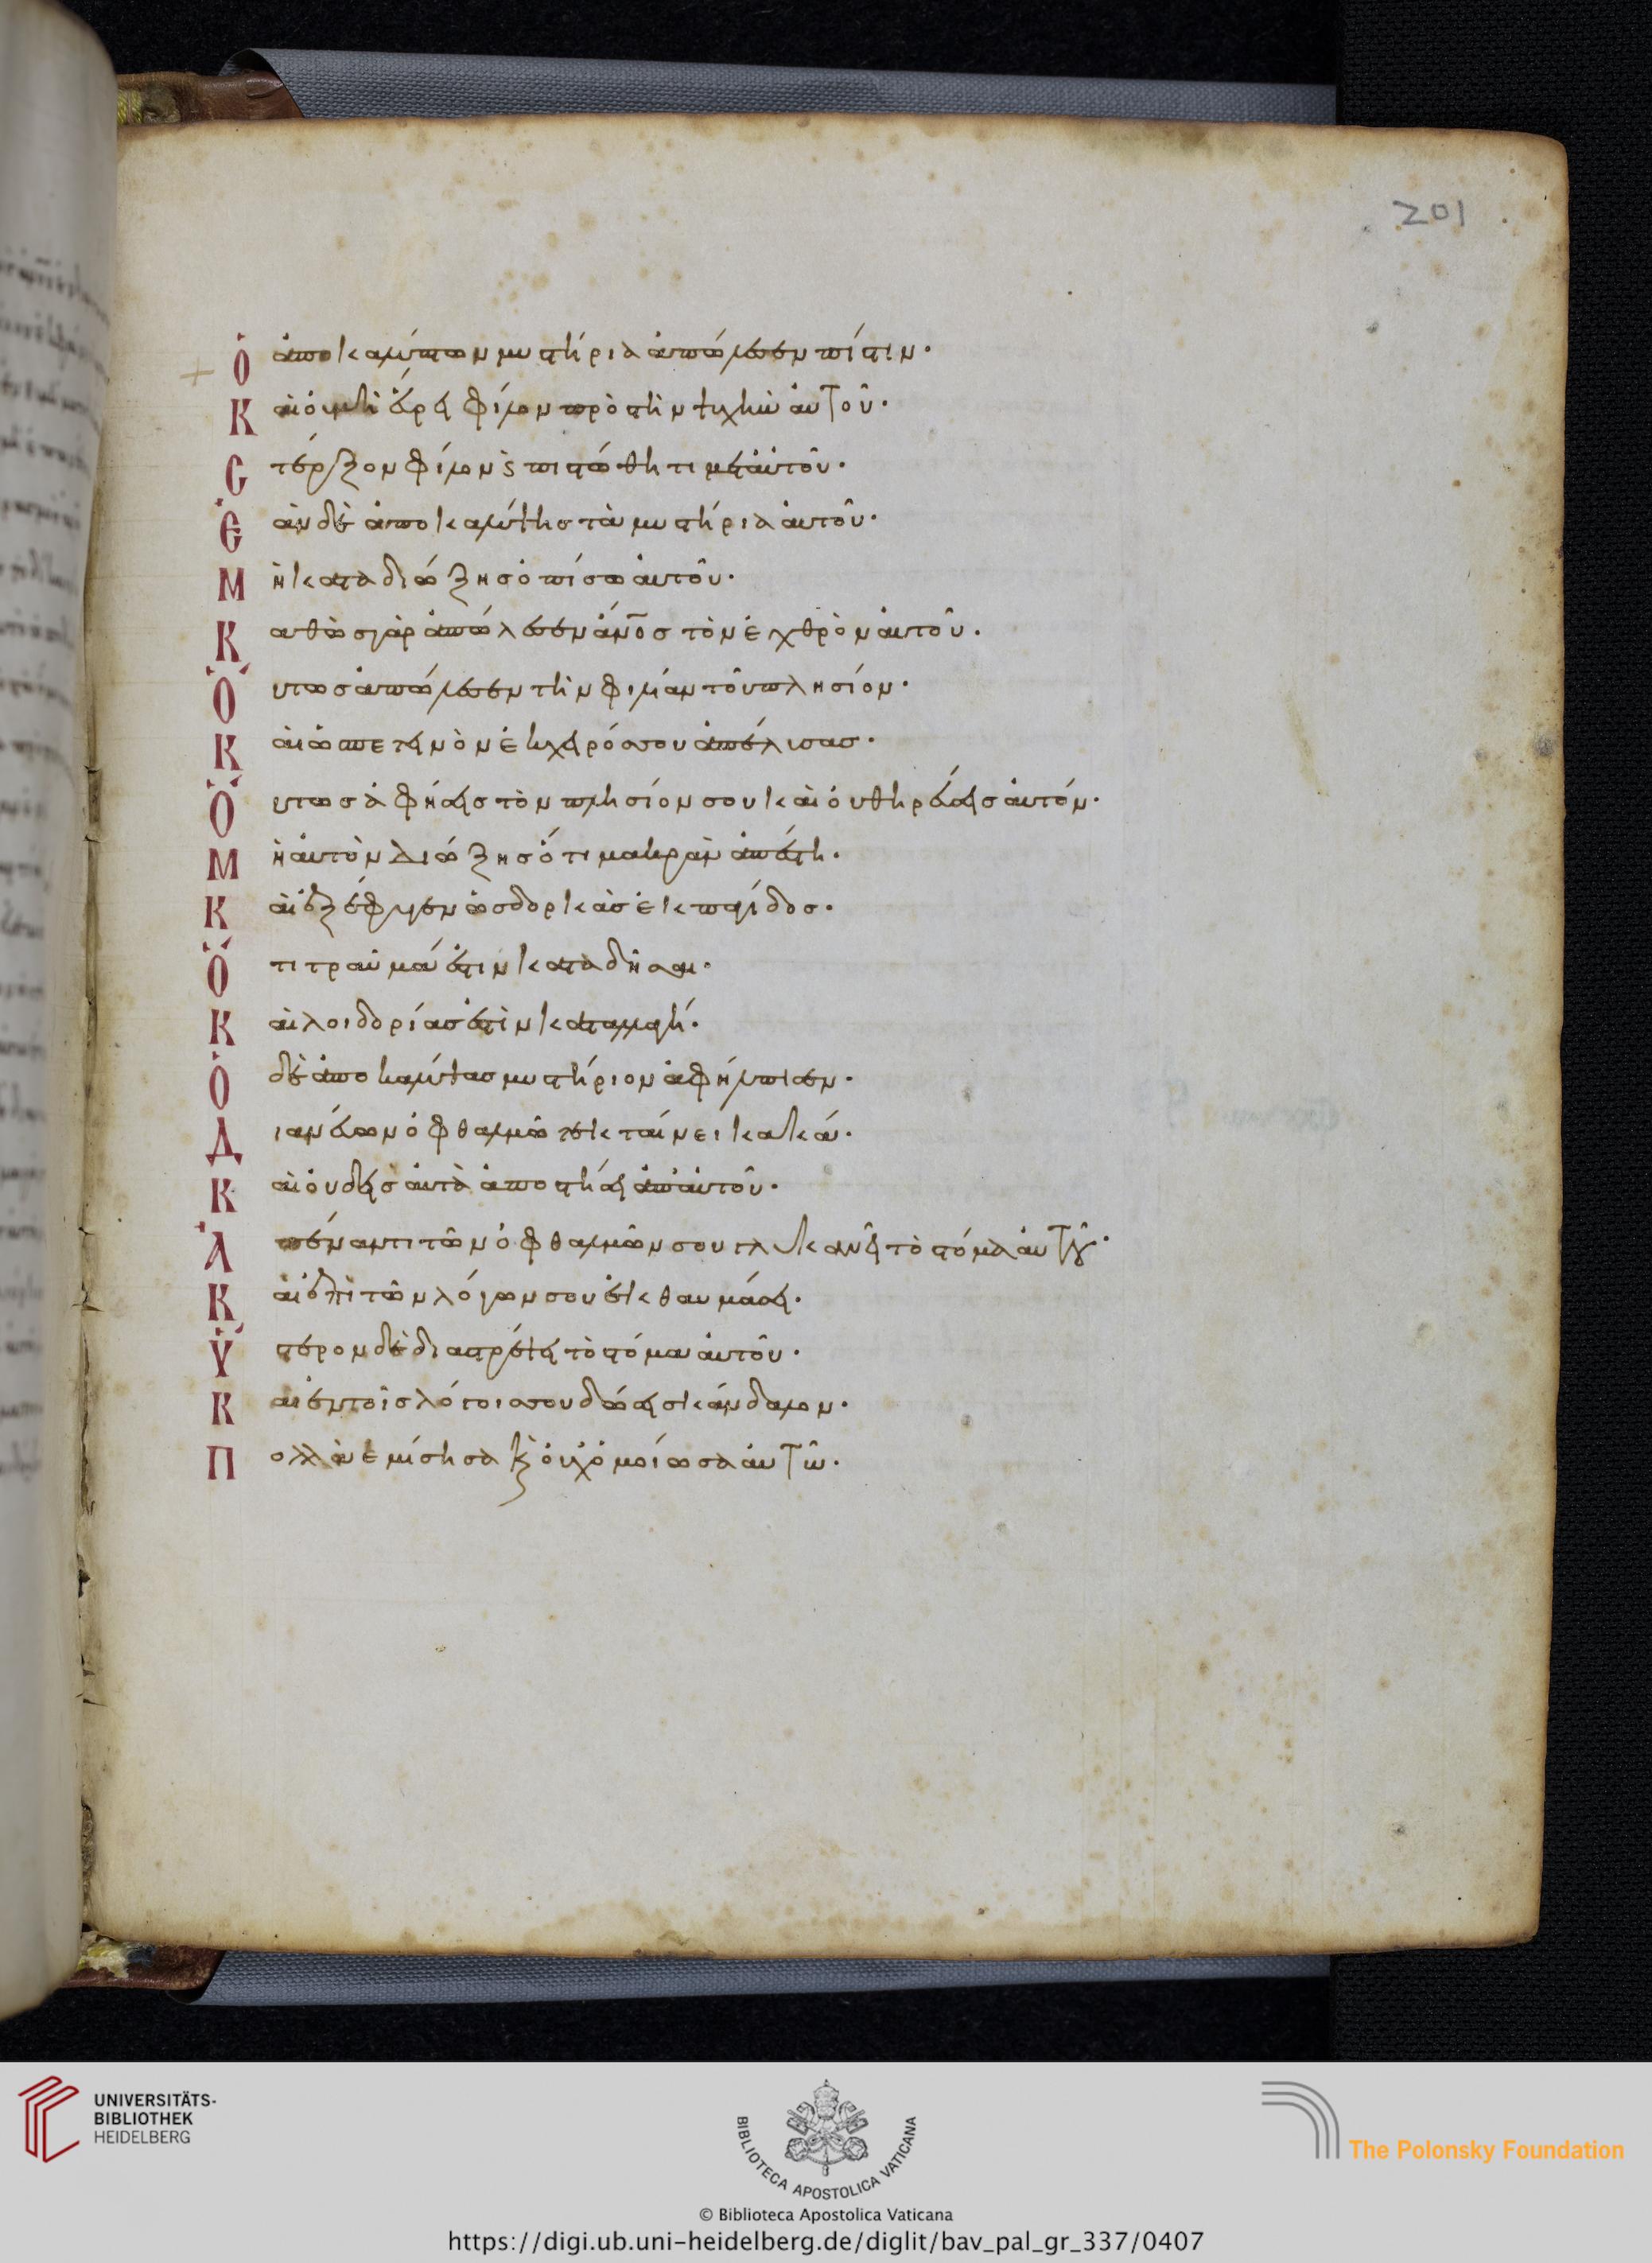 201
Ὁ ἀποκαλύπτων μυστήρια ἀπώλεσεν πίστιν·
Καὶ οὐ μὴ εὕρει φίλον πρὸς τὴν ψυχὴν αὐτοῦ·
Στέρξον φίλον καὶ πιστώθητι μετ' αὐτοῦ·
Ἐὰν δὲ ἀποκαλύψης τὰ μυστήρια αὐτοῦ·
Μὴ καταδιώξης ὀπίσω αὐτοῦ·
Καθὼς γὰρ ἀπώλεσεν ἄν̅ο̅σ̅ τὸν ἐχθρὸν αὐτοῦ·
Οὕτως ἀπώλεσεν τὴν φιλίαν τοῦ πλησίον·
Καὶ ὡς πετεινὸν ἐκ χειρός σου ἀπέλυσας·
Οὕτως ἀφήσεις τὸν πλησίον σου καὶ οὐ θηρεύσεις αὐτόν·
Μὴ αὐτὸν διώξης ὅτι μακρὰν ἀπέστη·
Καὶ ἐξέφυγεν ὡς δορκὰς ἐκ παγίδος·
Ὅτι τραῦμά ἐστιν καταδῆσαι·
Καὶ λοιδορίας ἐστὶν καταλλαγή·
Ὁ δὲ ἀποκαλύψας μυστήριον ἀφήλπισεν·
Διανεύων ὀφθαλμῶ τεκταίνει κακά·
Καὶ οὐδεὶς αὐτὰ ἀποστήσει ἀπ' αὐτοῦ·
Ἀπέναντι τῶν ὀφθαλμῶν σου γλυκανεῖ τὸ στόμα αὐτοῦ·
Καὶ ἐπὶ τῶν λόγων σου ἐκθαυμάσει·
Ὕστερον δὲ διαστρέψει τὸ στόμα αὐτοῦ·
Καὶ ἐν τοῖς λόγοις σου δώσει σκάνδαλον·
Πολλὰ ἐμίσησα καὶ οὐχ ὁμοίωσα αὐτῶ·
UNIVERSITÄTS-
BIBLIOTHEK
HEIDELBERG
BIBLIOTECA APOSTOLICA VATICANA
The Polonsky Foundation
© Biblioteca Apostolica Vaticana
https://digi.ub.uni-heidelberg.de/diglit/bav_pal_gr_337/0407